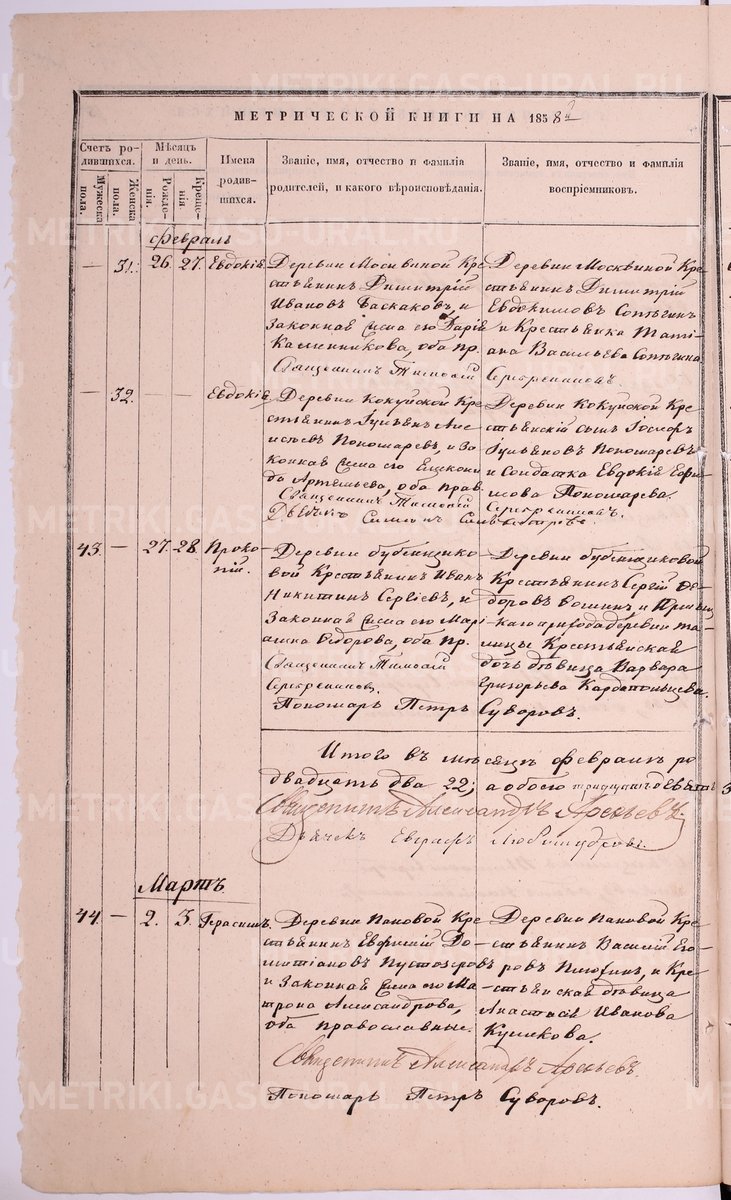 МЕТРИЧЕСКОЙ КНИГИ НА 1858й
Счетъ родившихся.
Мужеска пола.
Женска пола.
Мѣсяцъ и день.
Рожденія.
Крещенія
Имена родившихся.
Званіе, имя, отчество и фамилія родителей, и какого вѣроисповѣданія.
Званіе, имя, отчество и фамилія воспріемниковъ.
Февраль
— 31. 26. 27. Евдокія
Деревни Москвиной Кре-
стьянинъ Димитрій
Ивановъ Баскаковъ, и
Законная жена его Дарія
Каменникова, оба пр.
Священникъ Тимофей
Деревни Москвиной Кре-
стьянинъ Димитрій
Евдокимовъ
и Крестьянка Тати-
ана Васильева
Серебренниковъ.
— 32. — — Евдокія
Деревни Кокуйской Кре-
стьянинъ Іульянъ
Пономаревъ, и За-
конная жена его
Артемьева, оба прав.
Священникъ Тимофей
Дьячекъ Симеонъ Сильвестровъ.
Деревни Кокуйской Кре-
стьянскій сынъ Іосифъ
Іульяновъ Пономаревъ
и Солдатка Евдокія Ефи-
мова Пономарева.
Серебренниковъ.
43. — 27. 28. Проко-
пій.
Деревни Бубенщико-
вой Крестьянинъ Иванъ
Никитинъ Сергіевъ, и
Законная жена его Марі-
анна Ѳедорова, оба пр.
Священникъ Тимофей
Серебренниковъ,
Пономарь Петръ Суворовъ.
Деревни Бубенщиковой
Крестьянинъ Сергій Ѳе-
доровъ и
прихода деревни
Крестьянская
дочь дѣвица Варвара
Григорьева Кардапольцева.
Итого въ мѣсяцѣ февралѣ ро
двадцать два 22; а обоего тридцать девять
Священникъ Александръ Арефьевъ.
Дьячекъ Евграфъ Любомудровъ.
Мартъ
44. — 2. 3. Герасимъ.
Деревни Пановой Кре-
стьянинъ Евфимій До-
митіановъ Пустозеровъ
и Законная жена его Ма-
трона Александрова,
оба православные.
Деревни Пановой Кре-
стьянинъ Василій Его-
ровъ и Кре-
стьянская дѣвица
Анастасія Иванова
Куликова.
Священникъ Александръ Арефьевъ.
Пономарь Петръ Суворовъ.
METRIKI.GASO-URAL.RU